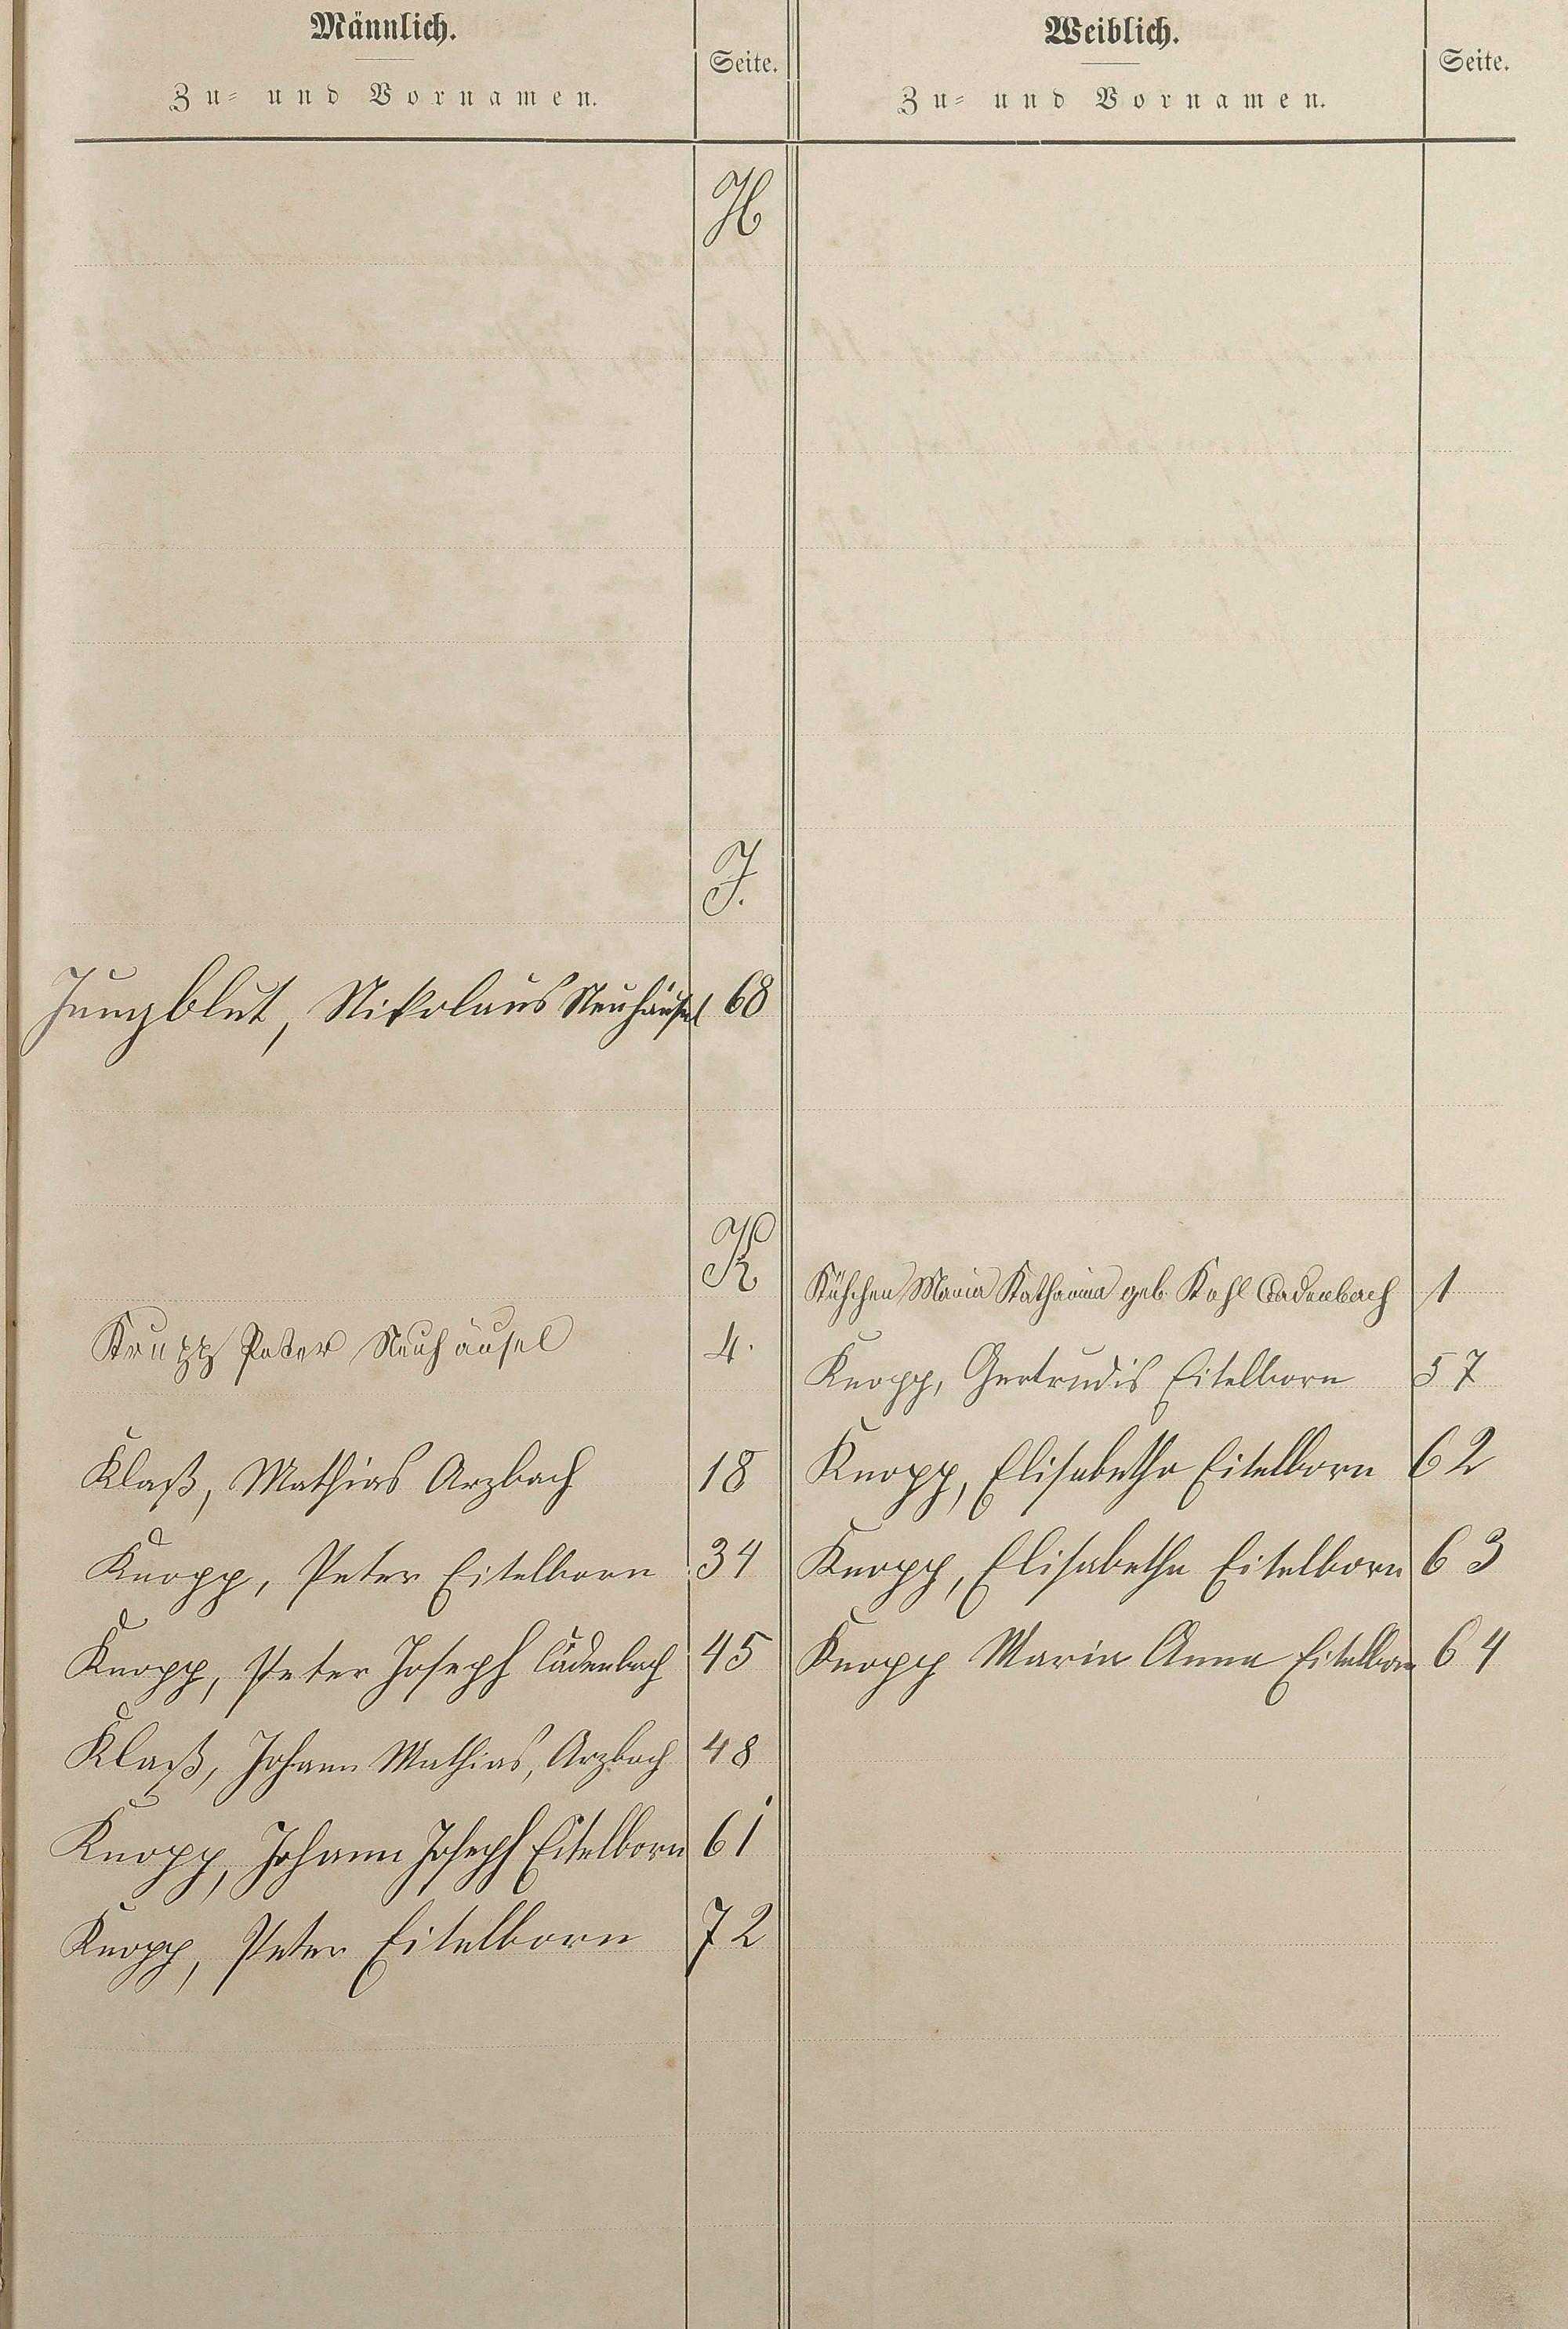 Männlich.
Zu- und Vornamen.
Seite.
Weiblich.
Zu- und Vornamen.
Seite.
H
J.
Jungblut, Nikolaus Neuhäusel 68
K
Maria Katharina geb. Kohl Cadenbach 1
Krupp Peter Neuhäusel 4.
Knopp, Gertrudis Eitelborn 57
Klaß, Mathias Arzbach 18
Knopp, Elisabetha Eitelborn 62
Knopp, Peter Eitelborn 34
Knopp, Elisabetha Eitelborn 63
Knopp, Peter Joseph Cadenbach 45
Knopp Maria Anna Eitelborn 64
Klaß, Johann Mathias, Arzbach 48
Knopp, Johann Joseph Eitelborn 61
Knopp, Peter Eitelborn 72